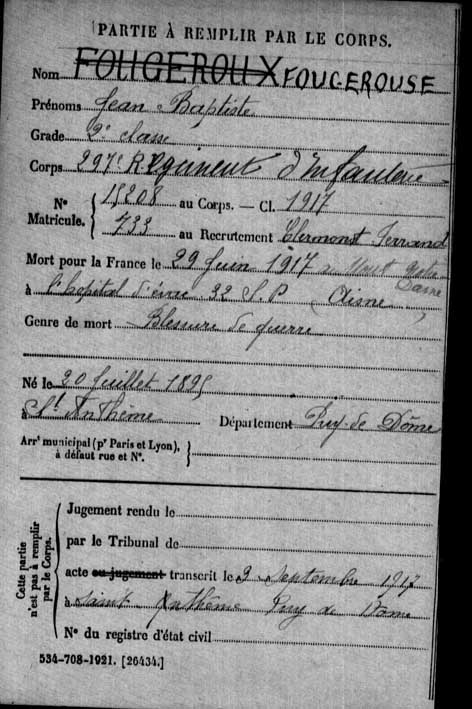 PARTIE À REMPLIR PAR LE CORPS.
Nom FOUGEROUX FOUGEROUSE
Prénoms Jean Baptiste
Grade 2e classe
Corps 297e Régiment d'Infanterie
N° Matricule. { 15208 au Corps. — Cl. 1917
733 au Recrutement Clermont Ferrand
Mort pour la France le 29 Juin 1917
à l'hopital d'évac 32 S.P (Aisne)
Genre de mort Blessure de guerre
Né le 20 Juillet 1895
à St Anthème Département Puy-de-Dôme
Arrt municipal (pr Paris et Lyon),
à défaut rue et N°.
Cette partie
n'est pas à remplir
par le Corps.
Jugement rendu le
par le Tribunal de
acte ou jugement transcrit le 9 Septembre 1917
à Saint-Anthème Puy de Dome
N° du registre d'état civil
534-708-1921. [26434.]